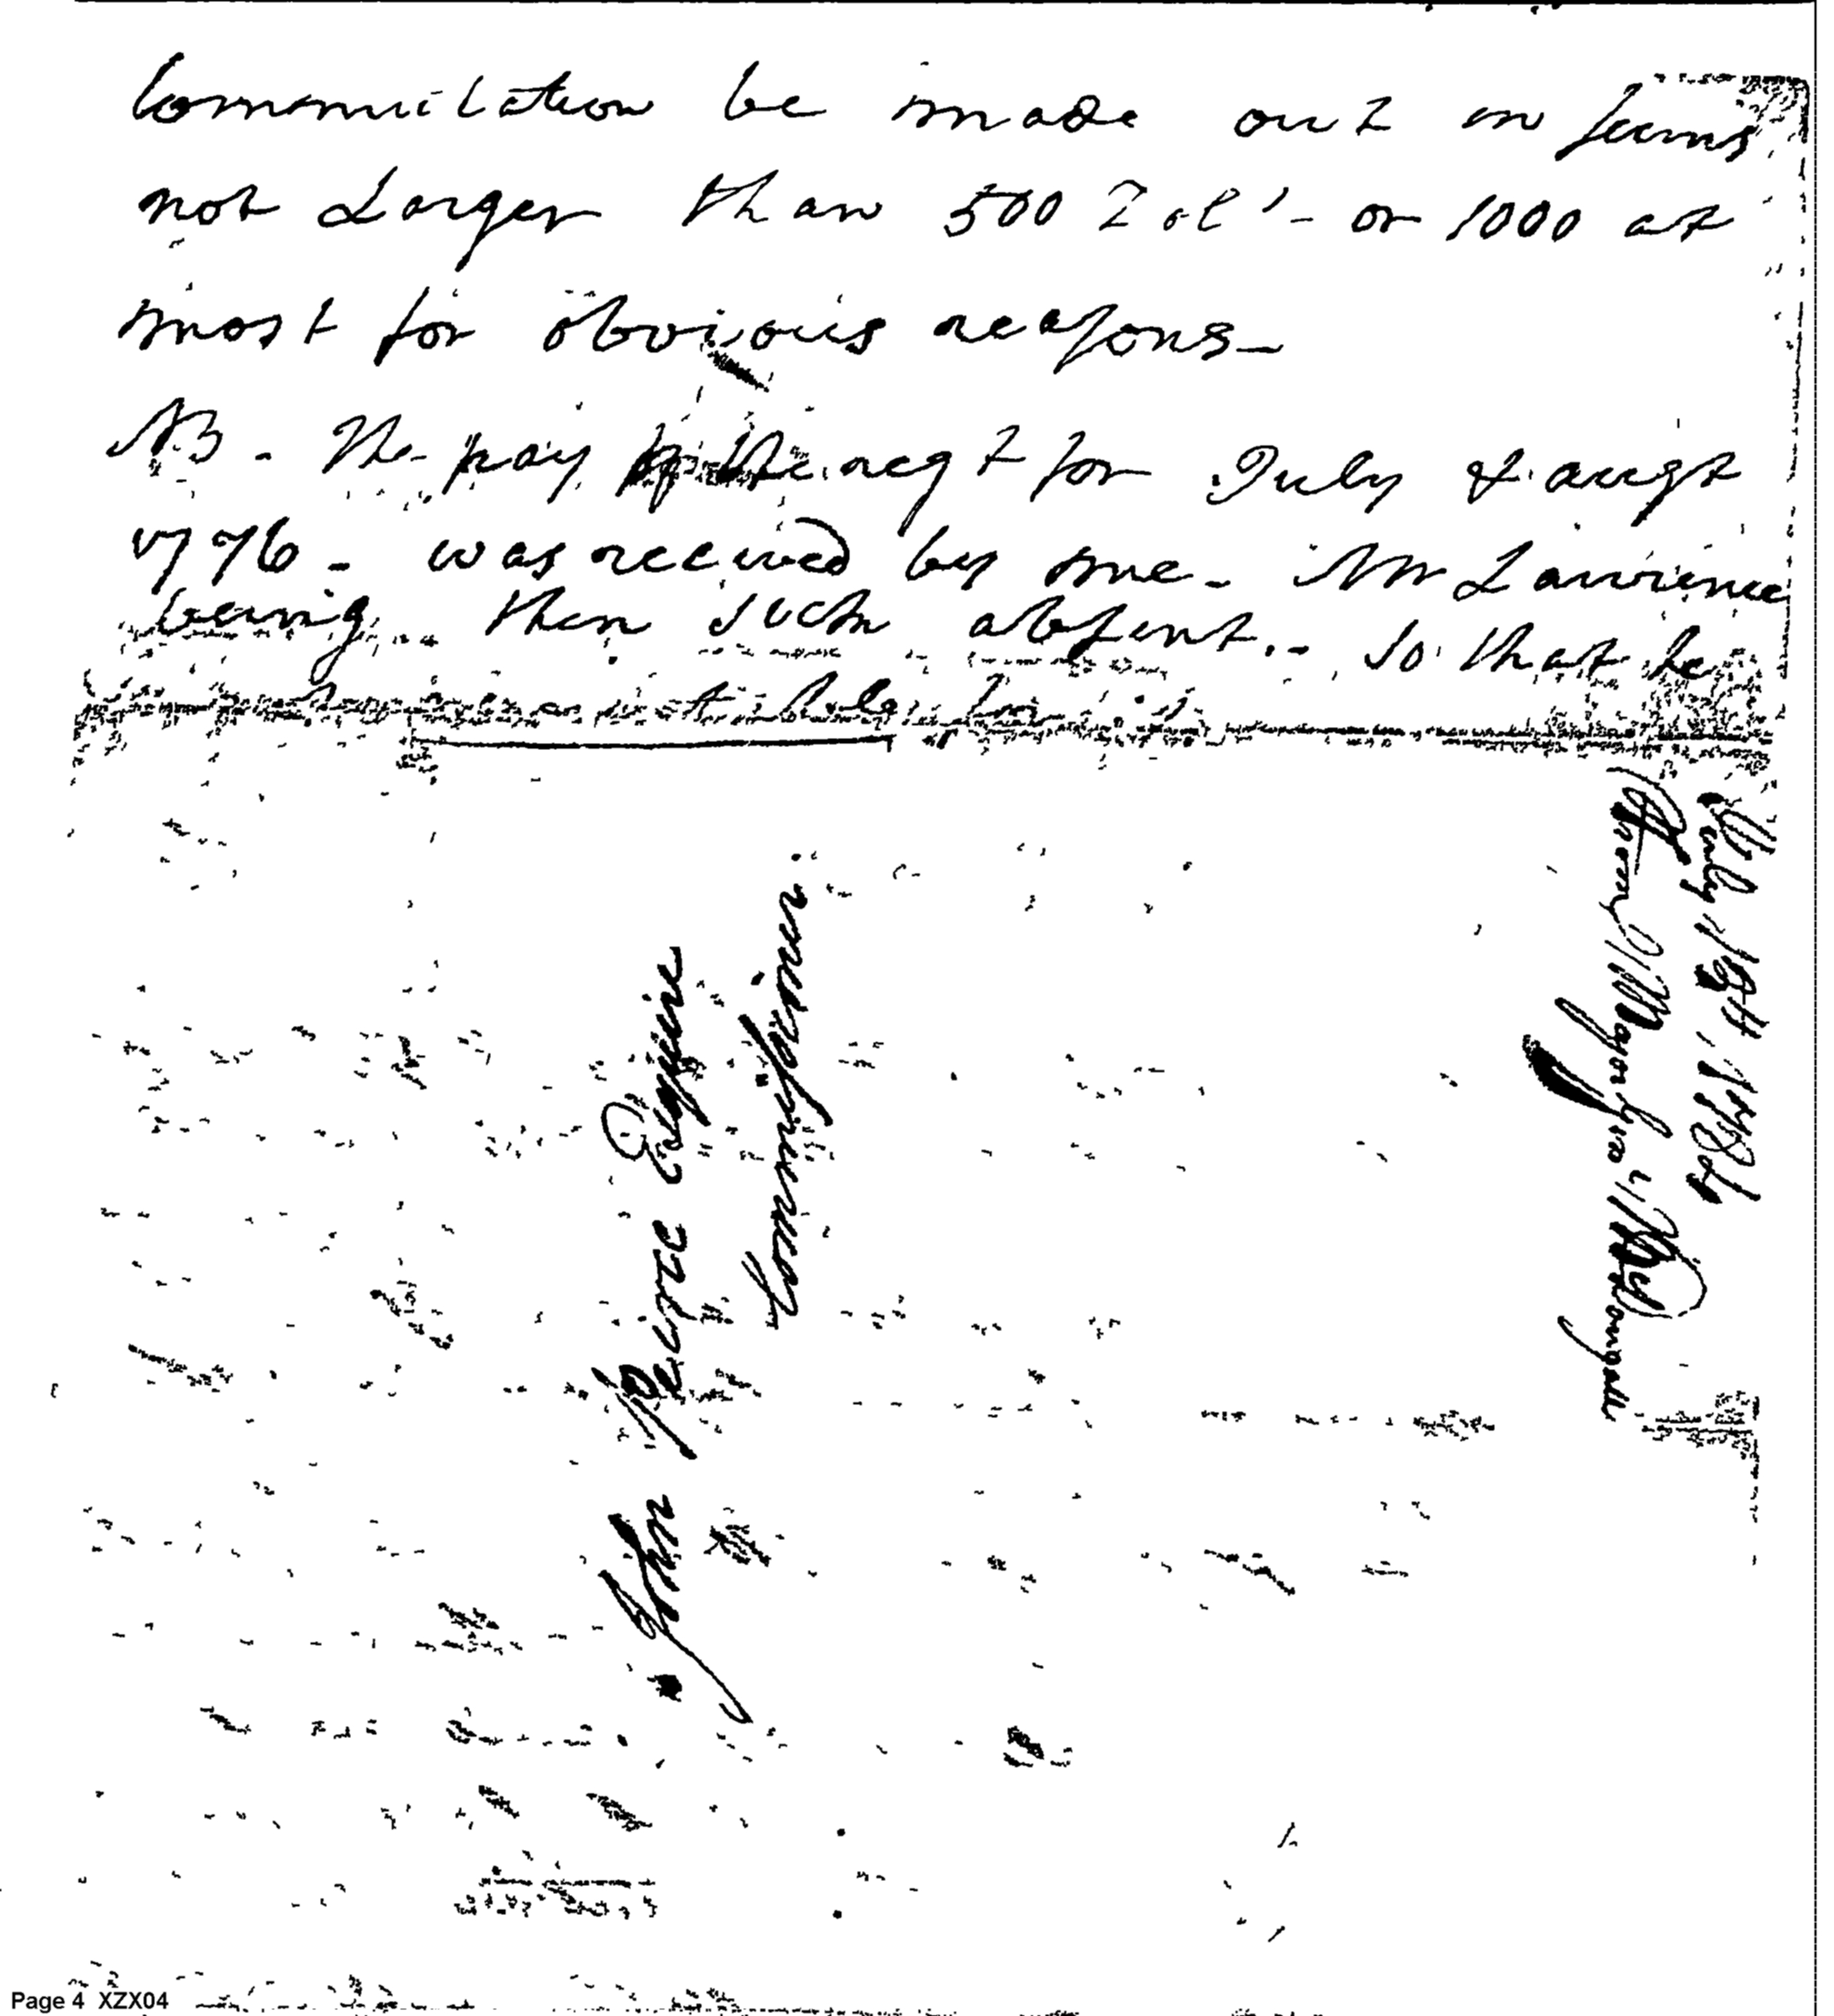 Commutation be made out in sums
not Larger than 500 Dol's - or 1000 at
most for obvious reasons -
NB - The pay of the regt for July & augt
1776 - was received by me - Mr Lawrence
being then such absent. - so that he
not
John Peirce Esquire
Commissioner
July 18th, 1784
From Major Genl McDougall
Page 4 XZX04